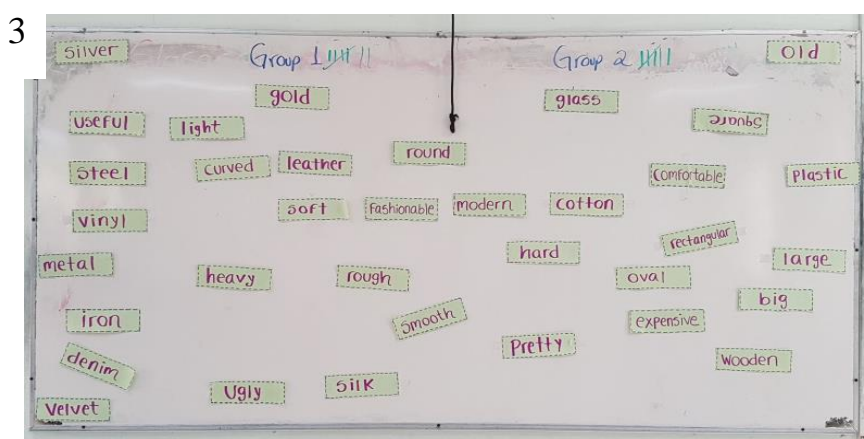 3
silver
Group 1 𝍸 ||
Group 2 𝍸 |
Old
gold
glass
useful
light
square
round
steel
curved
leather
comfortable
plastic
vinyl
soft
fashionable
modern
cotton
rectangular
hard
metal
large
heavy
rough
oval
big
iron
smooth
expensive
Pretty
denim
wooden
Ugly
silk
velvet